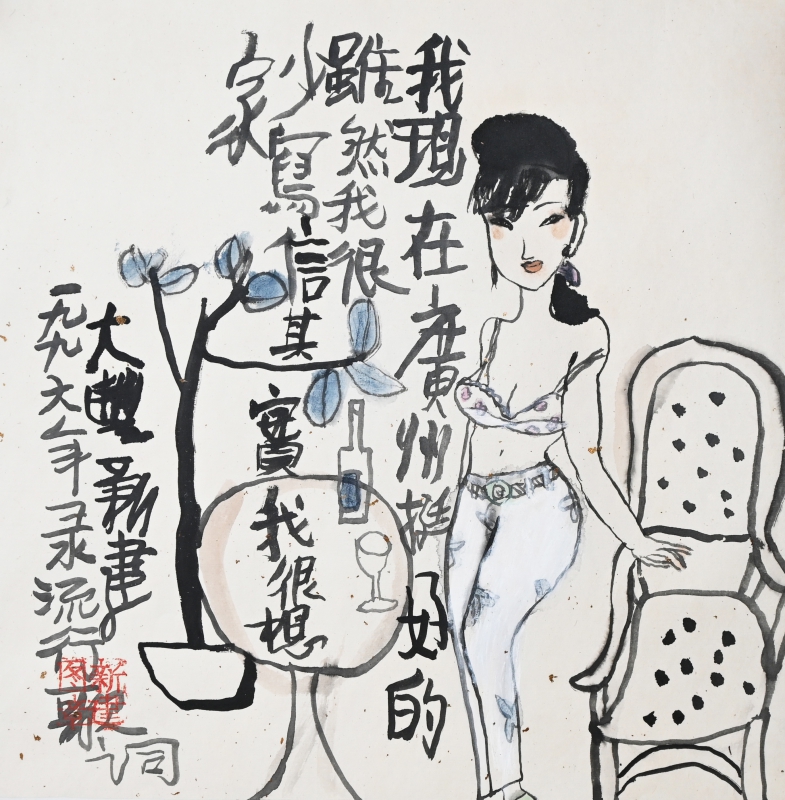 我現在廣州挺好的
雖然我很
少寫信其實我很想
家
大豐新建
一九九六年录流行歌词
新建